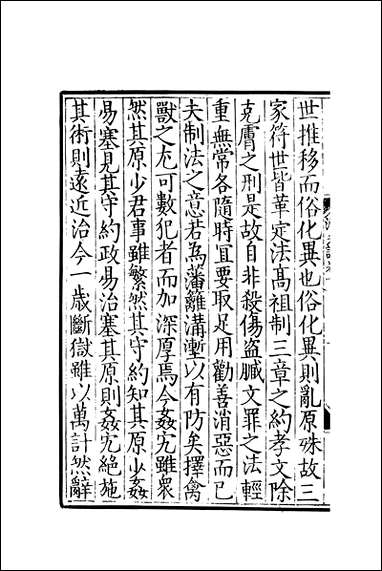 世推移而俗化異也俗化異則亂原殊故三
家符世皆革定法高祖制三章之約孝文除
克膚之刑是故自非殺傷盜臧文罪之法輕
重無常各隨時宜要取足用勸善消惡而已
夫制法之意若為藩籬溝塹以有防矣擇禽
獸之尤可數犯者而加深厚焉今姦宄雖衆
然其原少君事雖繁然其守約知其原少姦
易塞見其守約政易治塞其原則姦宄絶施
其術則遠近治今一歳斷獄雖以萬計然辭